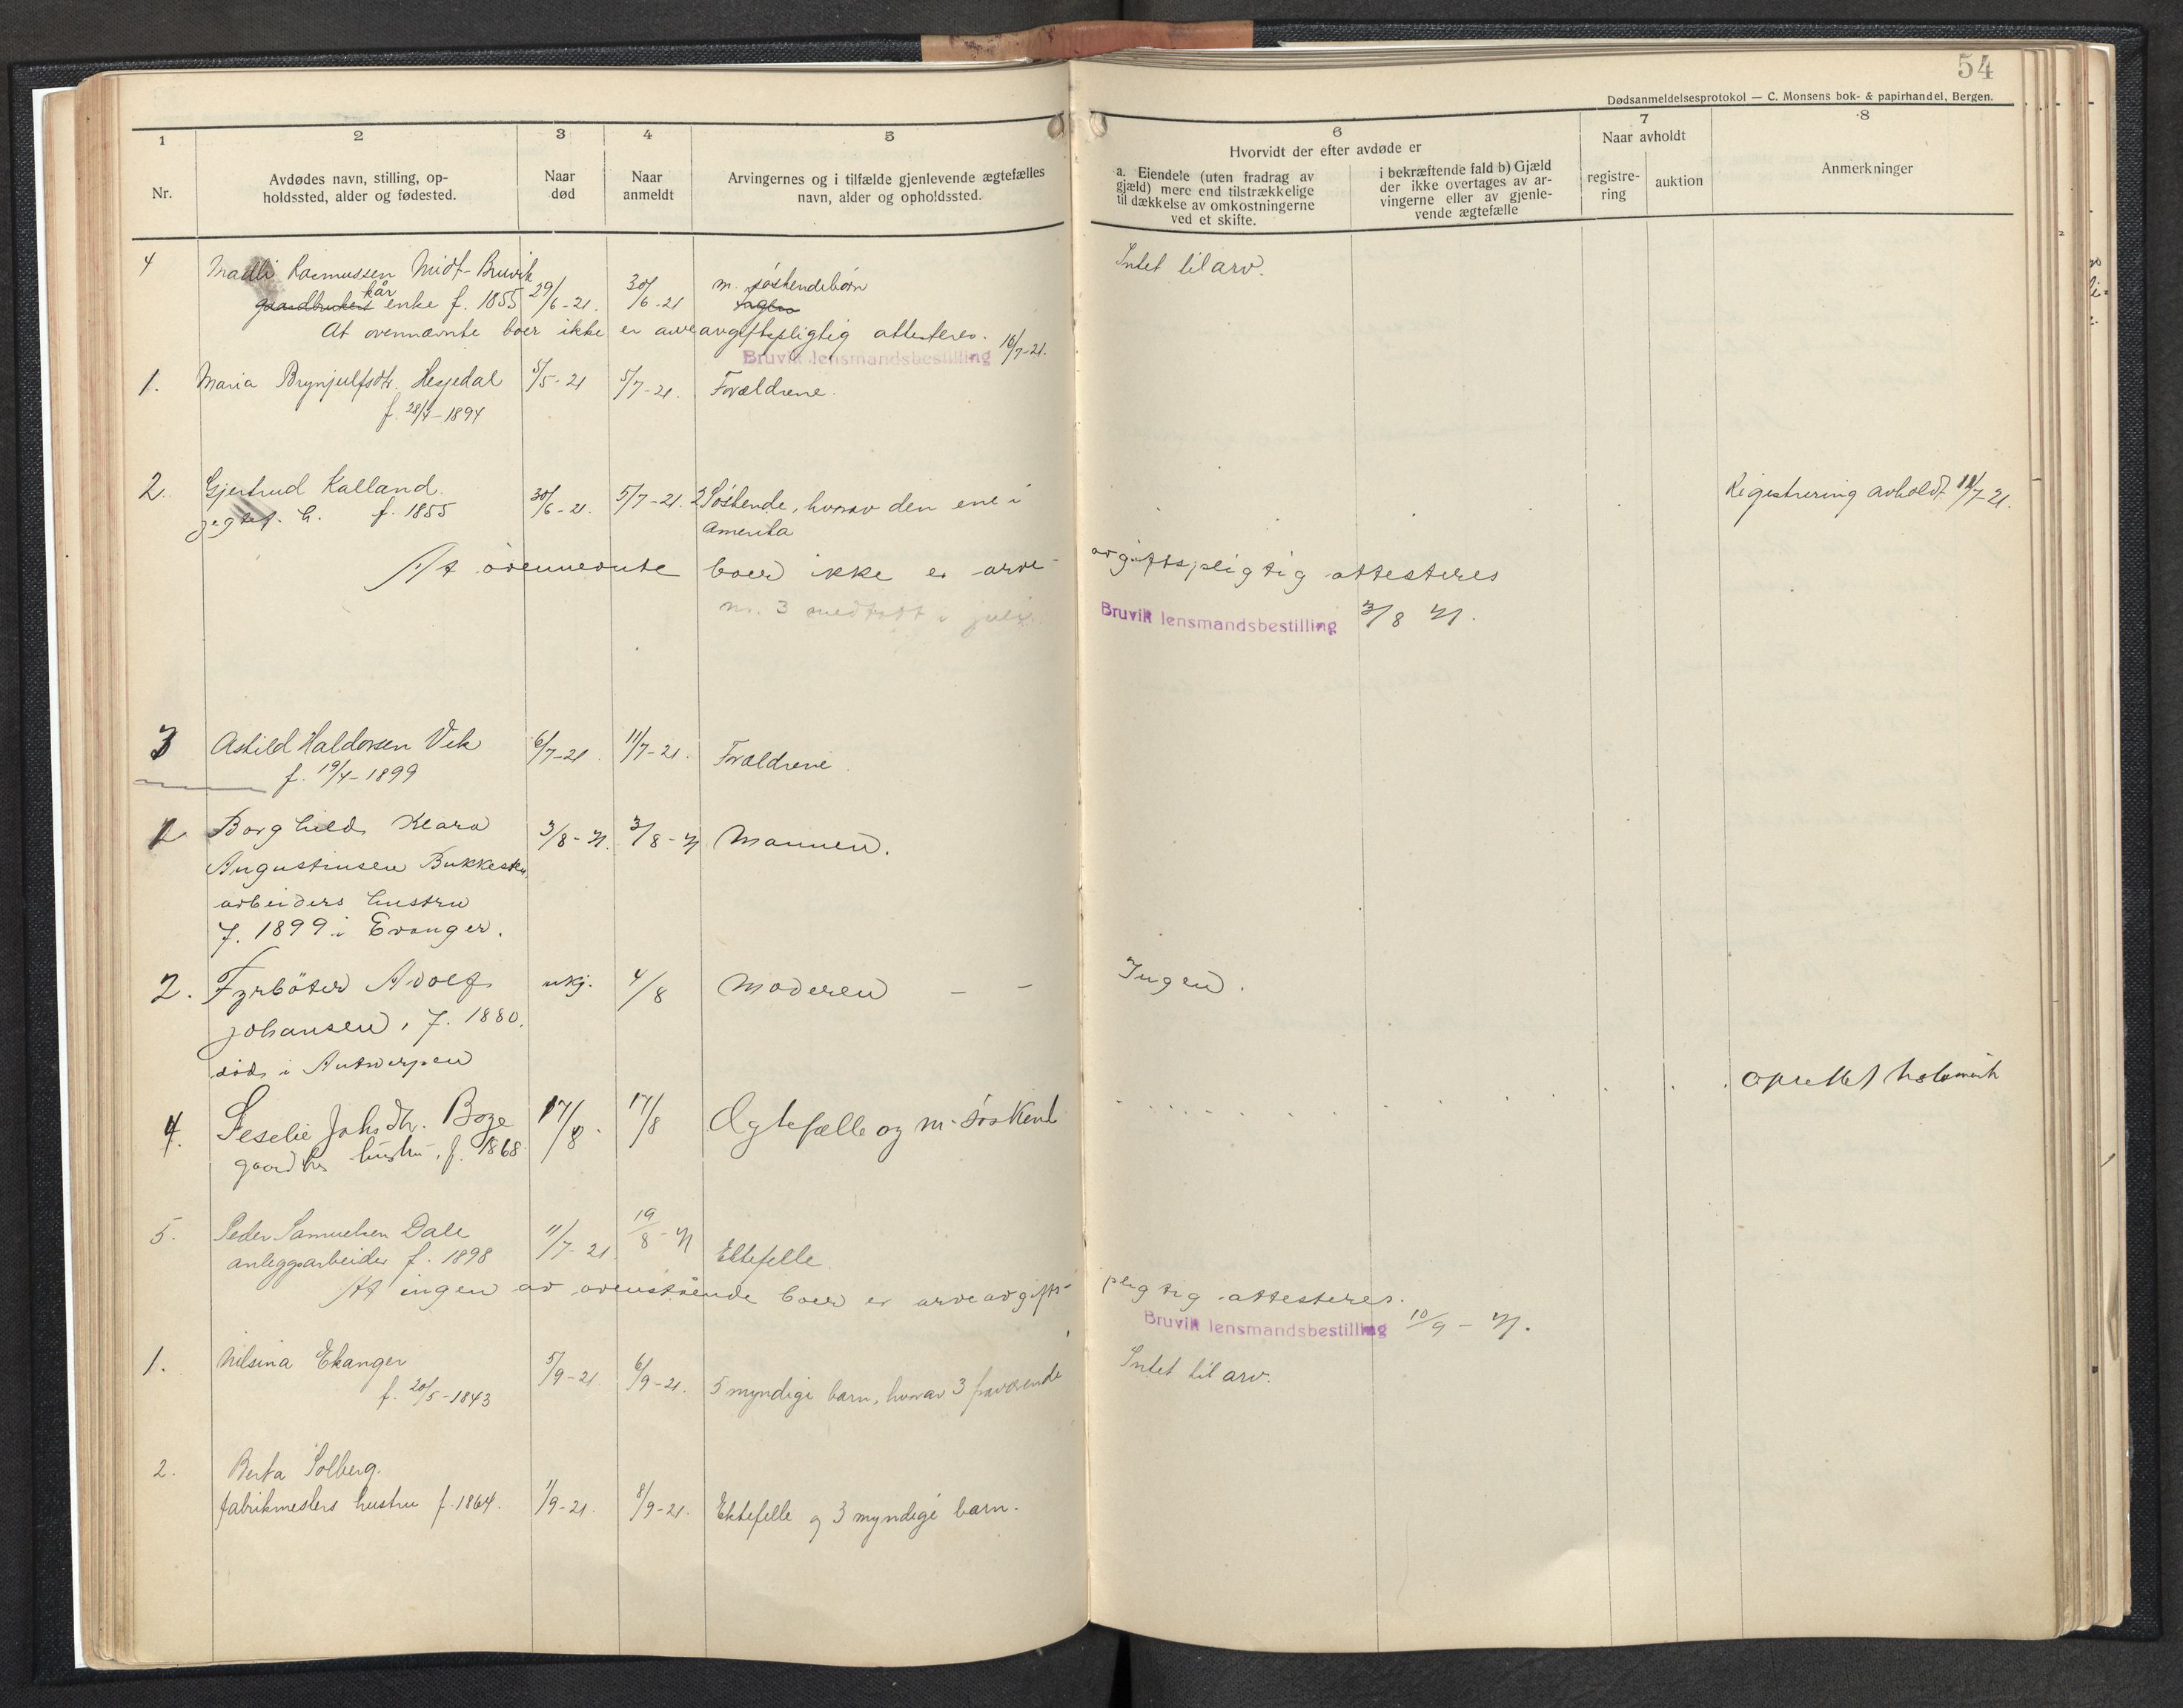 54
Dødsanmeldelsesprotokol — C. Monsens bok- & papirhandel, Bergen.
1 2 3 4 5 6 7 8
Nr.
Avdødes navn, stilling, op-
holdssted, alder og fødested.
Naar
død
Naar
anmeldt
Arvingernes og i tilfælde gjenlevende ægtefælles
navn, alder og opholdssted.
Hvorvidt der efter avdøde er
a. Eiendele (uten fradrag av
gjæld) mere end tilstrækkelige
til dækkelse av omkostningerne
ved et skifte.
i bekræftende fald b) Gjæld
der ikke overtages av ar-
vingerne eller av gjenle-
vende ægtefælle
Naar avholdt
registre-
ring
auktion
Anmerkninger
4 Rasmussen Midt-Bruvik 29/6-21. 30/6-21 m. søskendebørn Intet til arv.
gaardbrukers kår enke f. 1855
At ovennævnte boer ikke er arveavgiftspligtig attesteres. 16/7-21.
Bruvik lensmandsbestilling
1. Maria Brynjulfsdtr. Hesjedal 5/5-21 5/7-21. Forældrene.
f. 28/4-1894
2. Gjertrud Kalland 30/6-21. 5/7-21. 2 Søskende, hvorav den ene i Registrering avholdt 12/7-21.
f. 1855 Amerika
At ovennevnte boer ikke er arve-avgiftspligtig attesteres
nr. 3 medtatt i juli
Bruvik lensmandsbestilling 3/8 21.
3 Askild Haldorsen Vik 6/7-21. 11/7-21. Forældrene.
f. 19/4-1899
1 Borghild Klara 3/8-21. 3/8-21 Mannen.
Augustinsen Bukkestu,
arbeiders hustru
f. 1899 i Evanger.
2. Fyrbøter Adolf ukj. 4/8 Moderen — — Ingen.
Johansen, f. 1880.
død i Antwerpen
4. Seselie Johsdtr. Boge 17/8. 17/8 Ægtefælle og m. søskend
gaardbrs hustru, f. 1868.
5. Peder Samuelsen Dale 11/7-21. 19/8-21 Ektefelle.
anleggsarbeider f. 1898
At ingen av ovenstående boer er arveavgifts-pligtig attesteres.
Bruvik lensmandsbestilling 10/9-21.
1. Nilsina Ekanger 5/9-21. 6/9-21. 5 myndige barn, hvorav 3 fraværende Intet til arv.
f. 20/5-1843
2. Berta Solberg.
fabrikmesters hustru f. 1864. 1/9-21. 8/9-21. Ektefelle og 3 myndige barn.